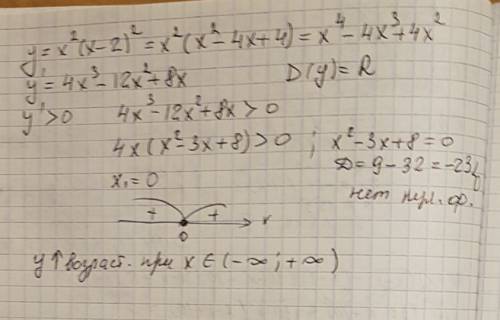 y = x²(x-2)² = x²(x²-4x+4) = x⁴-4x³+4x²
y' = 4x³-12x²+8x D(y) = R
y' > 0 4x³-12x²+8x > 0
4x(x²-3x+8) > 0 ; x²-3x+8 = 0
x₁ = 0 D = 9-32 = -23
нет нул. ф.
+ +
0 x
y ↑ возраст. при x ∈ (-∞; +∞)